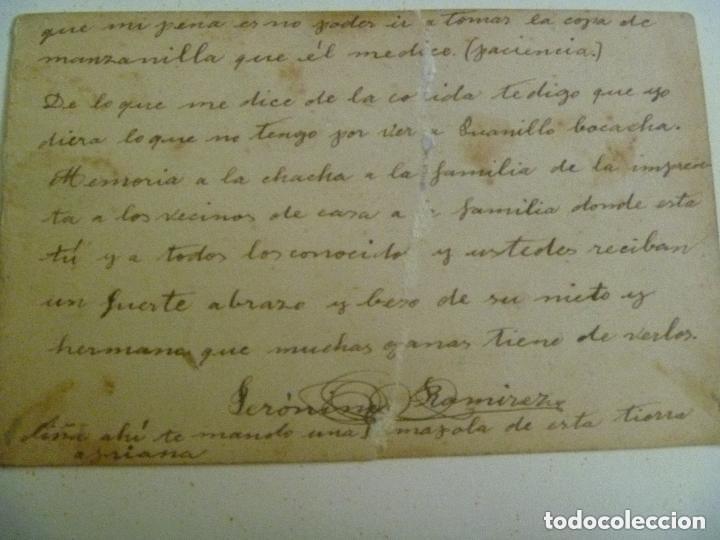 que mi pena es no poder ir a tomar la copa de
manzanilla que él me dice. (paciencia.)
De lo que me dice de la co ida te digo que yo
diera lo que no tengo por ver a Juanillo bocacha.
Memoria a la chacha a la familia de la impren
ta a los vecinos de casa a familia donde esta
tú y a todos los conocido y ustedes reciban
un fuerte abrazo y beso de su nieto y
hermano que muchas ganas tiene de verlos.
Jerónimo Ramirez
Niña ahi te mando una mapola de esta tierra
todocoleccion
todocoleccion.net